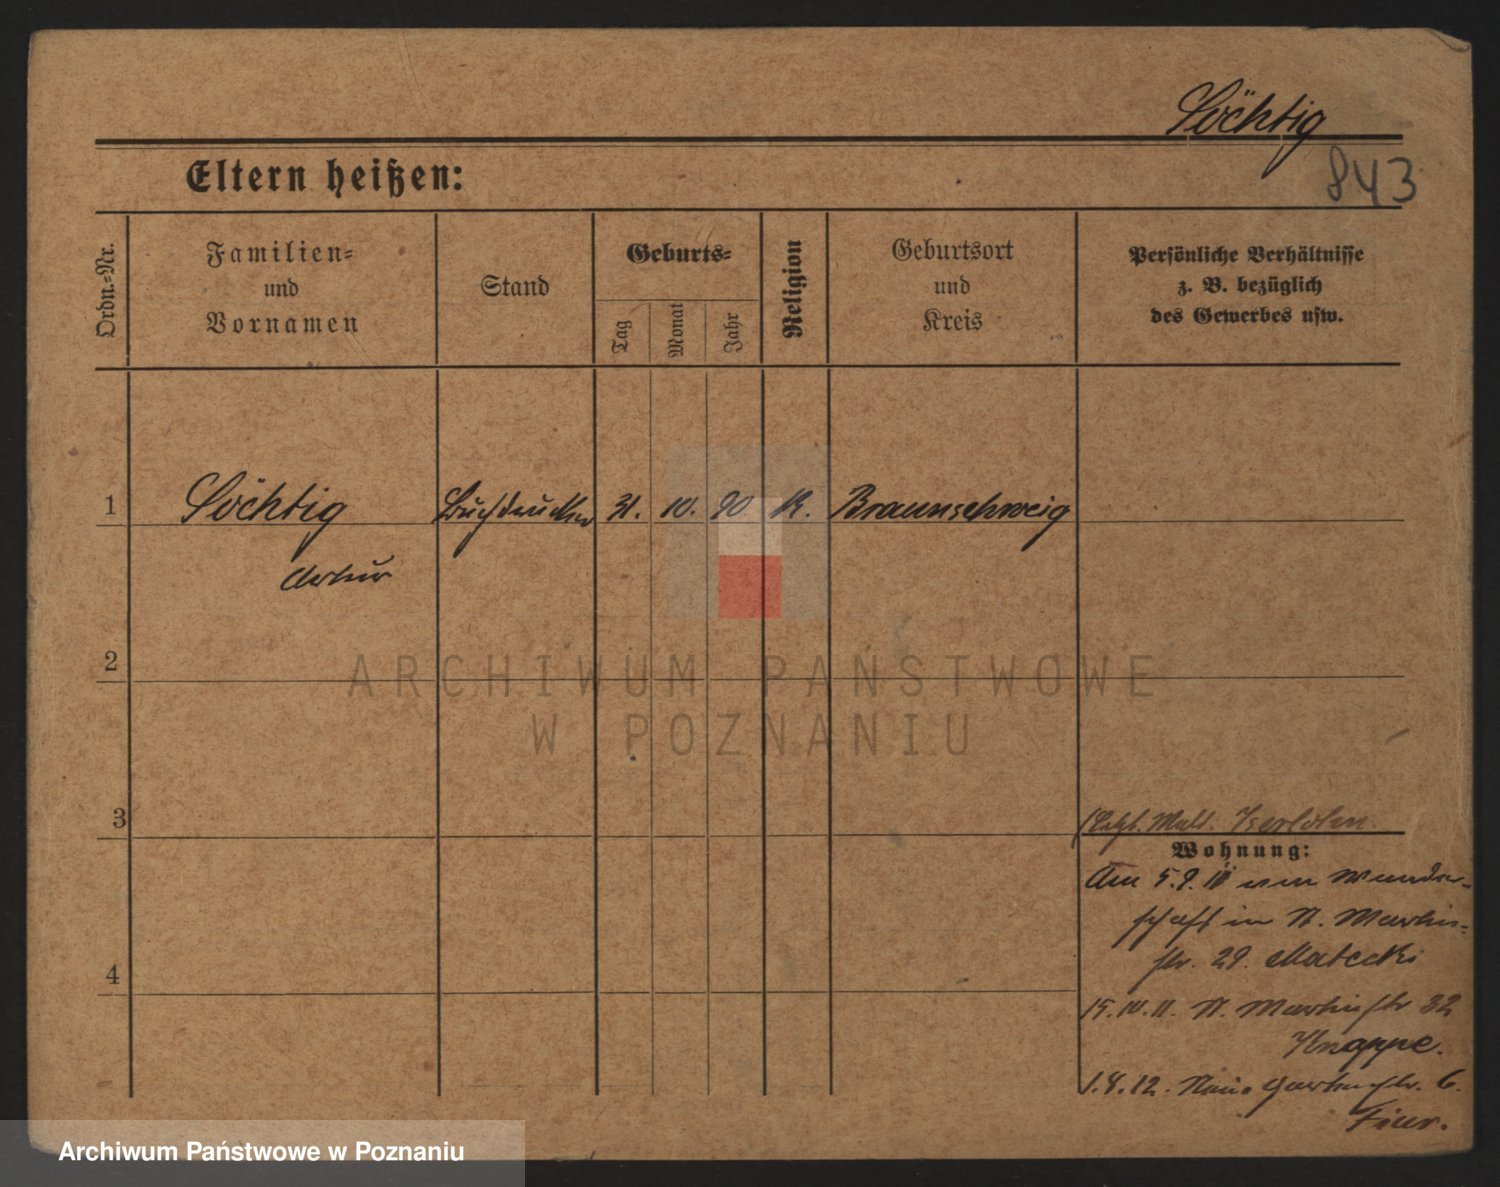 Söchtig
843
Eltern heißen:
Ordn.-Nr.
Familien-
und
Vornamen
Stand
Geburts-
Tag
Monat
Jahr
Religion
Geburtsort
und
Kreis
Persönliche Verhältnisse
z. B. bezüglich
des Gewerbes usw.
1
Söchtig
Buchdrucker
31.
10.
90
K.
Braunschweig
Artur
2
ARCHIWUM PAŃSTWOWE
W POZNANIU
3
Iserlohn.
Wohnung:
Am 5.9. von Wander-
schaft in St. Martin-
str. 29. Matecki
15.10.11. St. Martinstr 32
4
Knappe.
1.4.12. Gartenstr. 6.
Archiwum Państwowe w Poznaniu